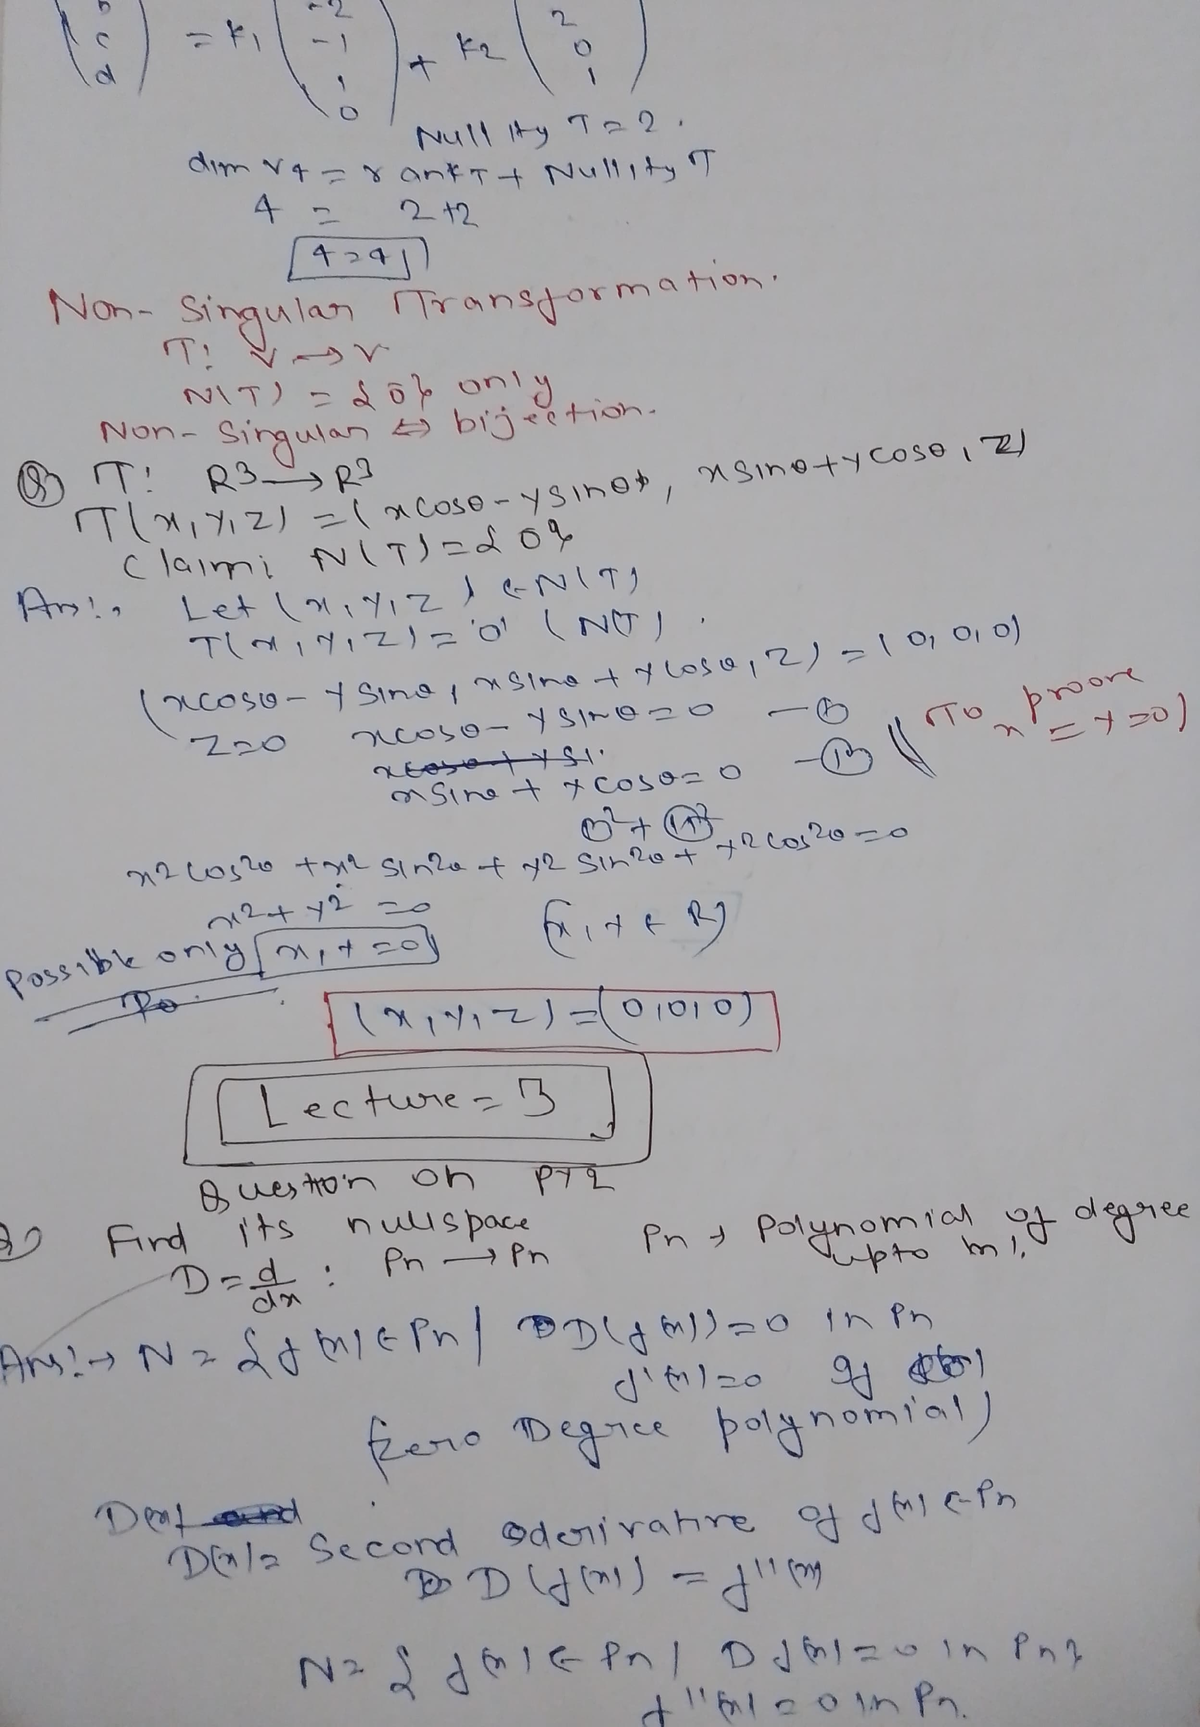 (b c d) = k1 (-2 -1 1 0) + k2 (2 0 1)
Nullity T = 2.
dim V4 = rank T + Nullity T
4 = 2+2
4=4
Non-Singular Transformation.
T: V → V
N(T) = {0} only
Non-Singular ⇔ bijection.
Q) T: R3 → R3
T(x,y,z) = (xcosθ - ysinθ, xsinθ+ycosθ, z)
Claim: N(T)={0}
Ans:- Let (x,y,z) ∈ N(T)
T(x,y,z) = '0' (N(T)).
(xcosθ - ysinθ, xsinθ + ycosθ, z) = (0,0,0)
z=0 xcosθ - ysinθ=0 - ①
(To prove x=y=0)
xsinθ + ycosθ=0 - ②
①² + ②²
x2cos2θ + x2 sin2θ + y2 sin2θ + y2cos2θ=0
x2+y2=0 (x,y ∈ R)
Possible only x,y=0
(x,y,z)=(0,0,0)
Lecture = 3
Question on
Q) Find its nullspace Pn → Polynomial of degree upto n.
D = d/dx : Pn → Pn
Ans:→ N = {f(x) ∈ Pn | D(f(x))=0 in Pn
f'(x)=0 of
(zero Degree polynomial)
D(x)
D(x)= Second derivative of f(x) ∈ Pn
D(f(x)) = f''(x)
N = {f(x) ∈ Pn | D f(x)=0 in Pn}
f''(x)=0 in Pn.